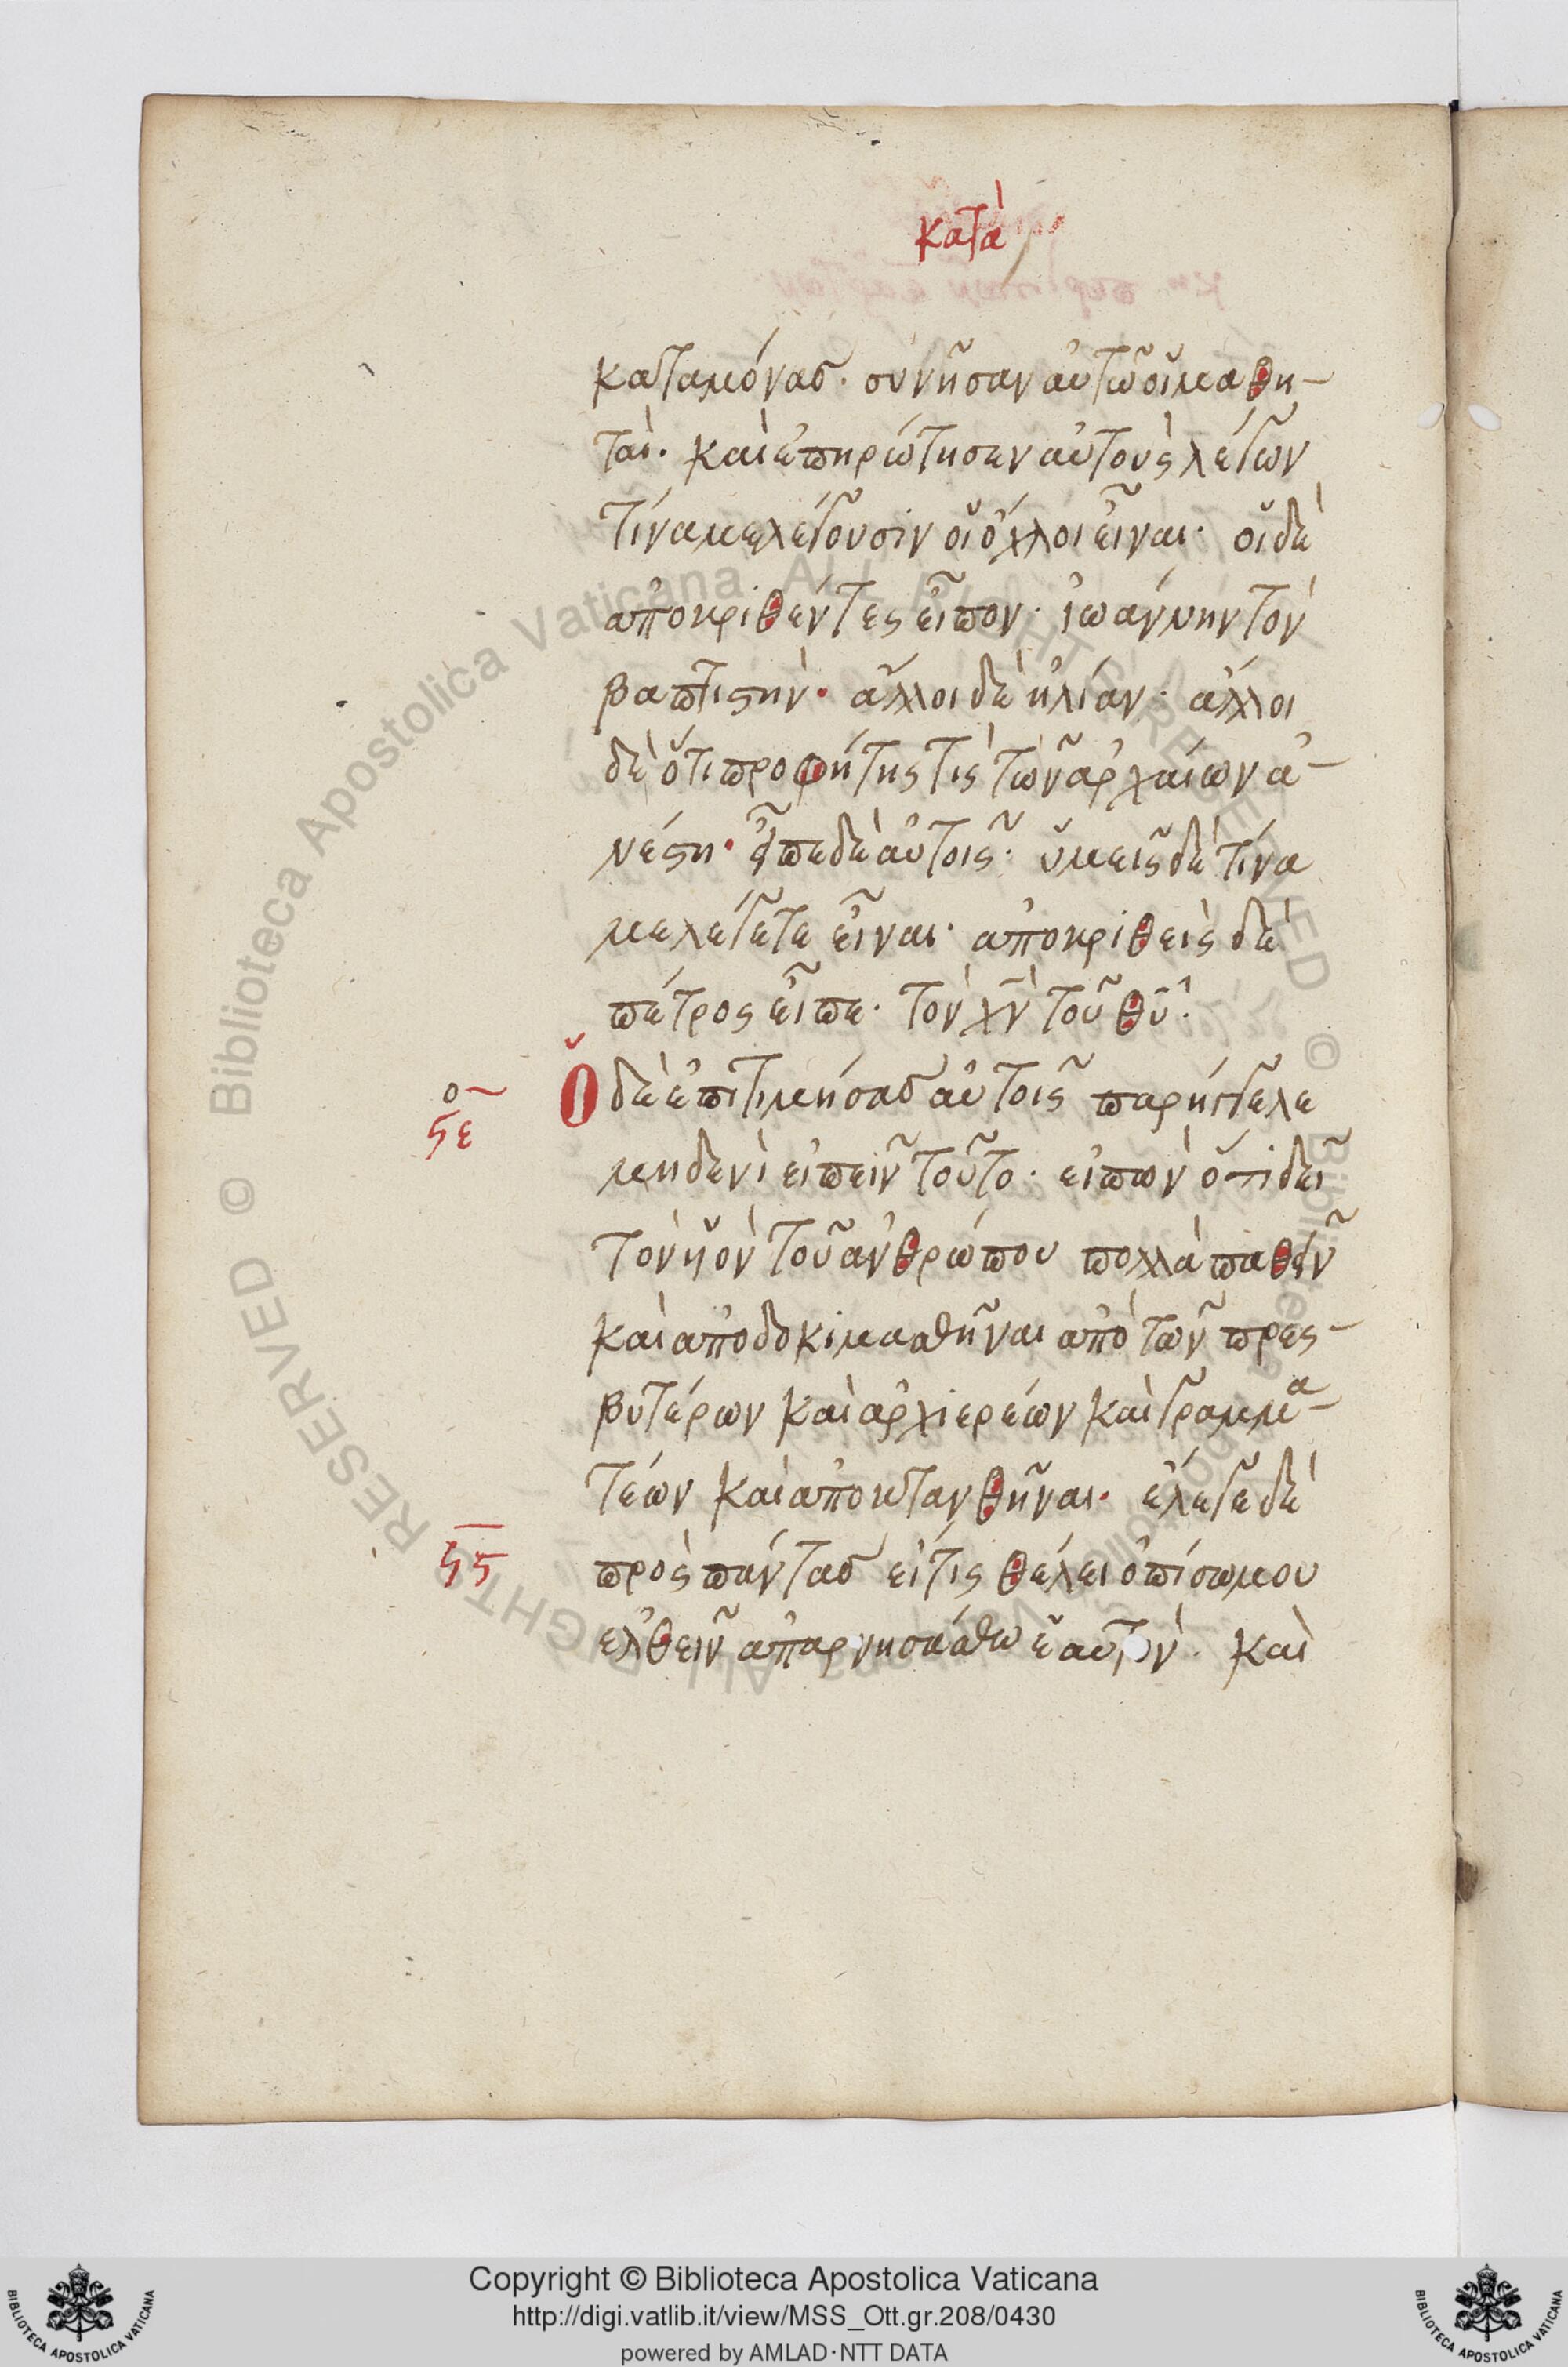 κατὰ
καταμόνας· συνῆσαν αὐτῶ οἱ μαθη-
ταί· καὶ ἐπηρώτησεν αὐτοὺς λέγων
τίνα με λέγουσιν οἱ ὄχλοι εἶναι· οἱ δὲ
ἀποκριθέντες εἶπον· ἰωάννην τὸν
βαπτιστήν· ἄλλοι δὲ ἠλίαν· ἄλλοι
δὲ ὅτι προφήτης τὶς τῶν ἀρχαίων ἀ-
νέστη· εἶπε δὲ αὐτοῖς· ὑμεῖς δὲ τίνα
με λέγετε εἶναι· ἀποκριθεὶς δὲ
πέτρος εἶπε· τὸν χν̄ τοῦ θῦ:
Ὁ δὲ ἐπιτιμήσας αὐτοῖς παρήγγειλε
ϟε
μηδενὶ εἰπεῖν τοῦτο· εἰπὼν ὅτι δεῖ
τὸν υἱὸν τοῦ ἀνθρώπου πολλὰ παθεῖν
καὶ ἀποδοκιμασθῆναι ἀπὸ τῶν πρεσ-
βυτέρων καὶ ἀρχιερέων καὶ γραμμα-
τέων καὶ ἀποκτανθῆναι· ἔλεγε δὲ
ϟϛ
πρὸς πάντας εἴ τις θέλει ὀπίσω μου
ἐλθεῖν ἀπαρνησάσθω ἑαυτόν· καὶ
© Biblioteca Apostolica Vaticana ALL RIGHTS RESERVED © Biblioteca Apostolica Vaticana ALL RIGHTS RESERVED
Copyright © Biblioteca Apostolica Vaticana
http://digi.vatlib.it/view/MSS_Ott.gr.208/0430
powered by AMLAD·NTT DATA
BIBLIOTECA APOSTOLICA VATICANA
BIBLIOTECA APOSTOLICA VATICANA